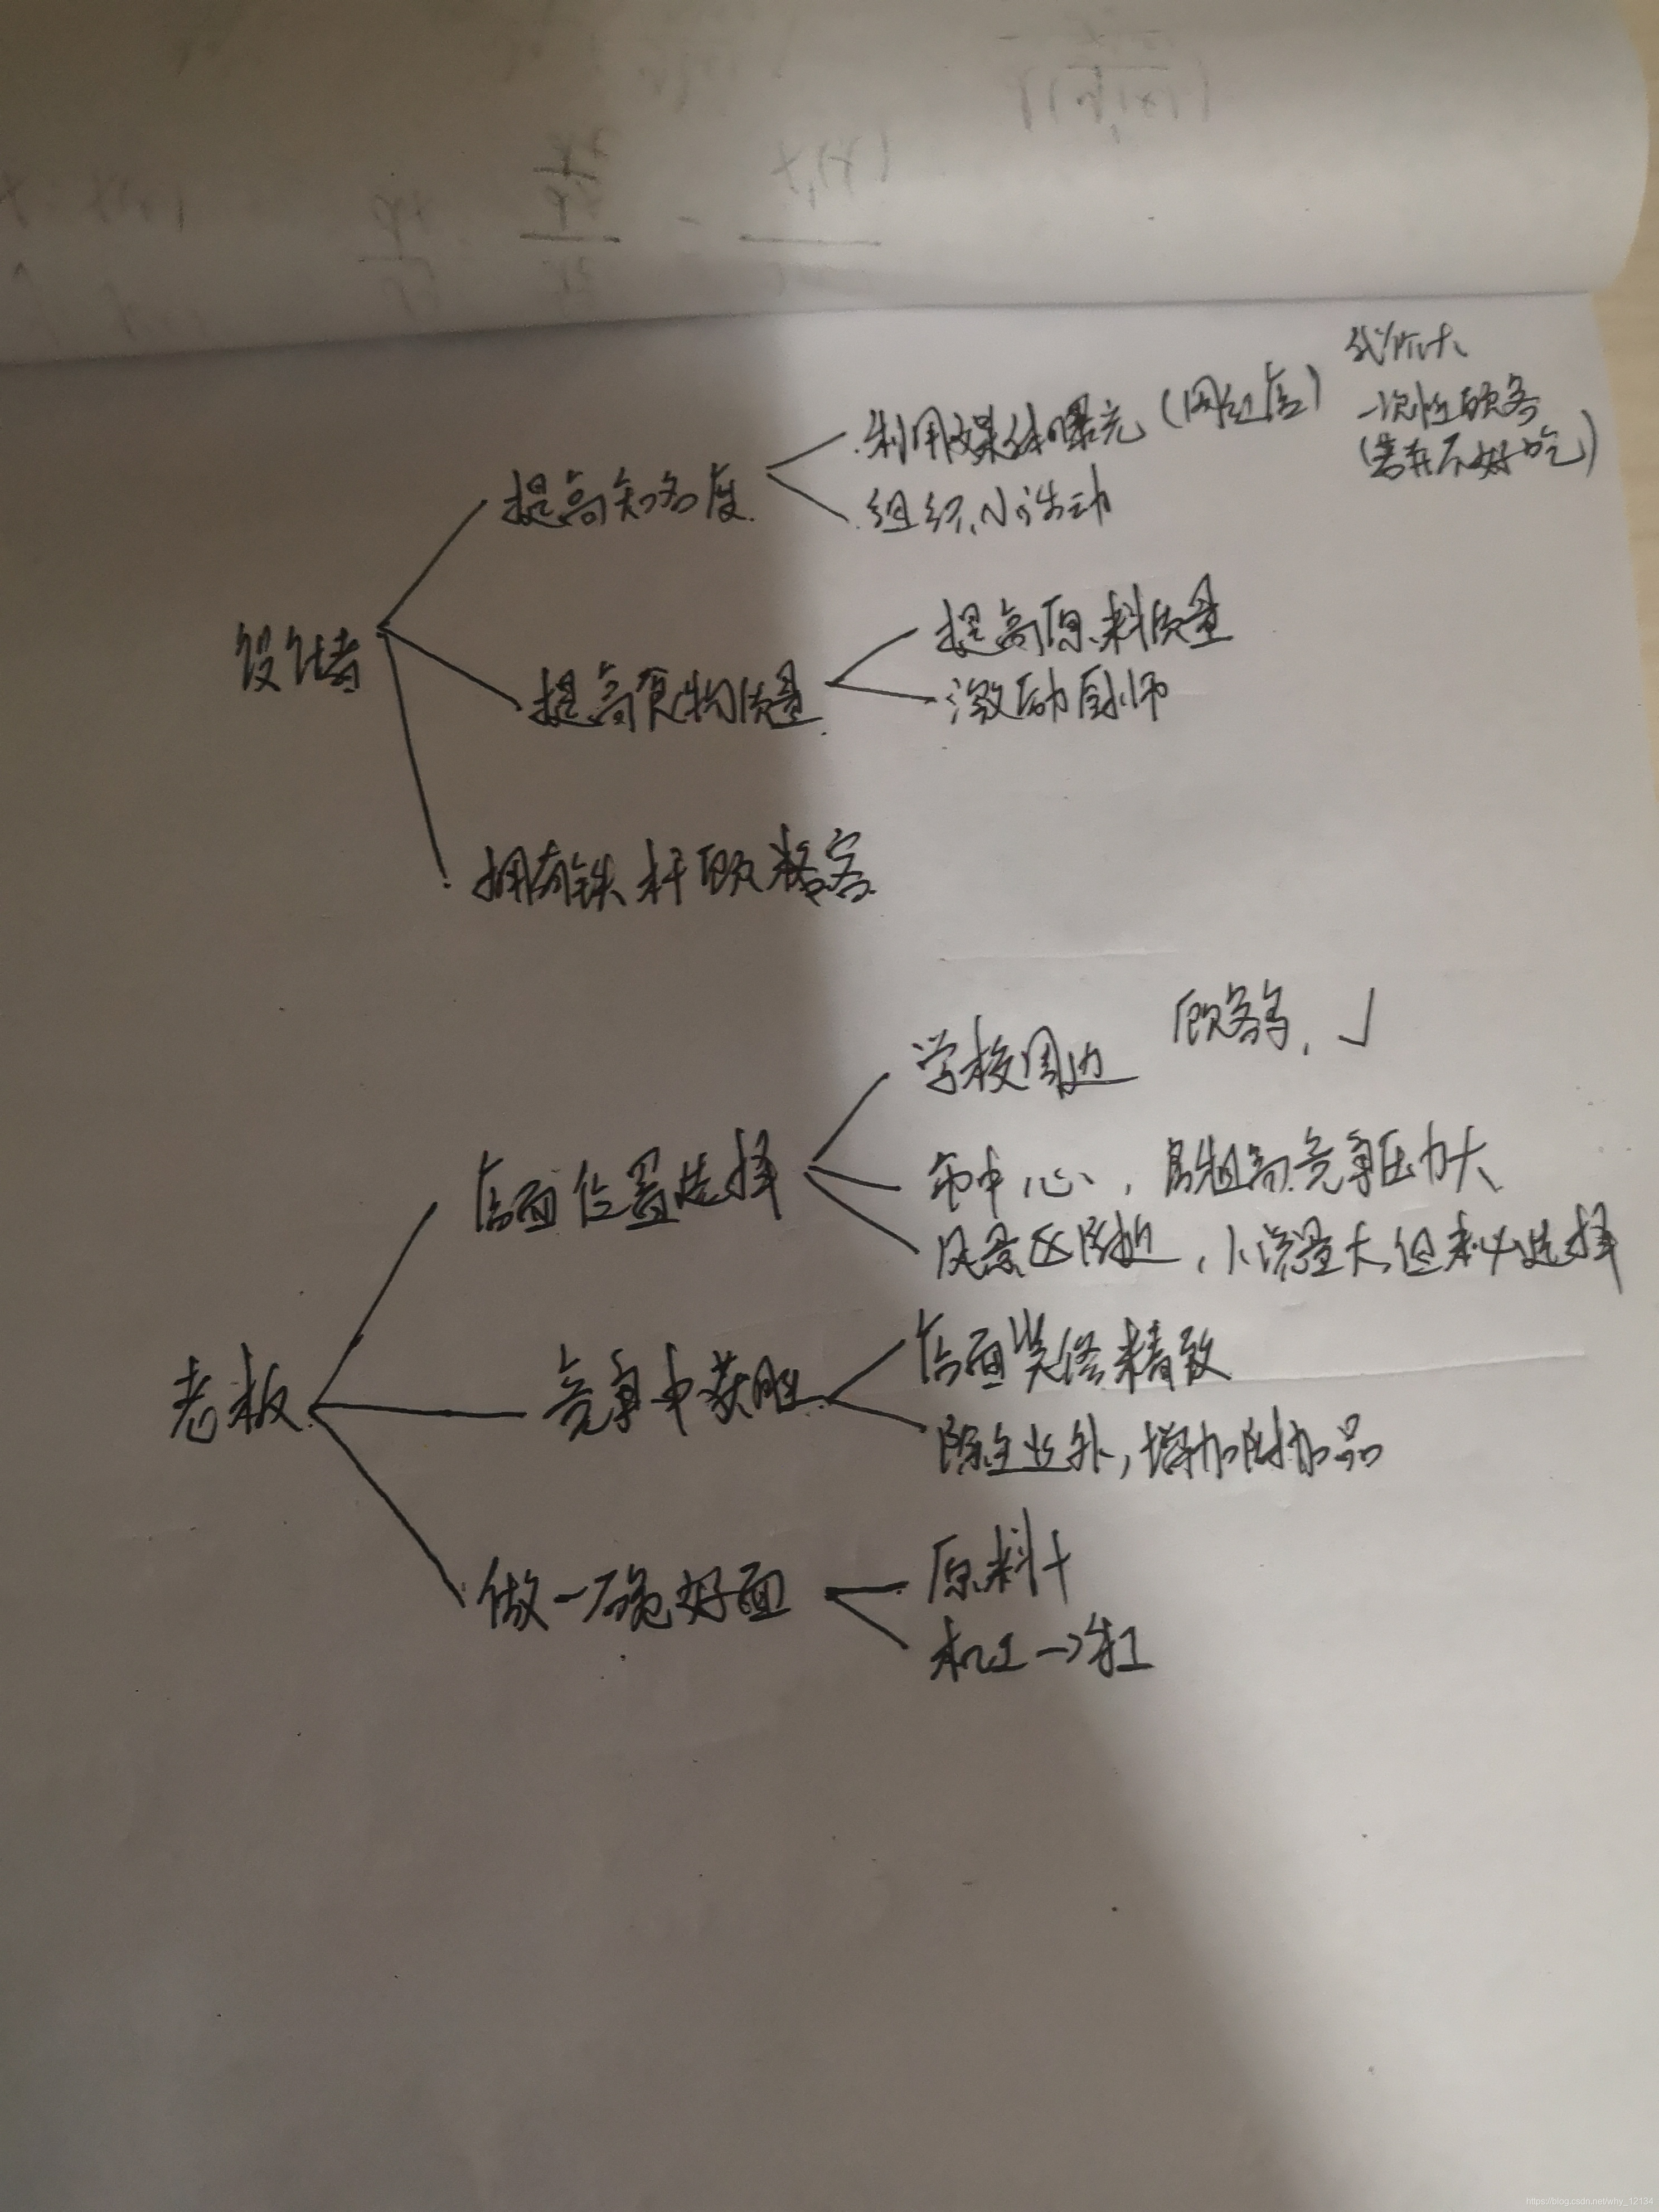 利用媒体曝光(网红店)
一次性顾客
(若开不好吃)
提高知名度
组织小活动
设计者
提高原料质量
提高食物质量
激励厨师
拥有铁杆顾客
学校周边 顾客多, √
店面位置选择
市中心, 房租高竞争压力大
风景区附近, 人流量大但未必选择
老板
竞争中获胜
店面装修精致
除主业外, 增加附加品
做一碗好面
原料+
机工→手工
https://blog.csdn.net/why_12134